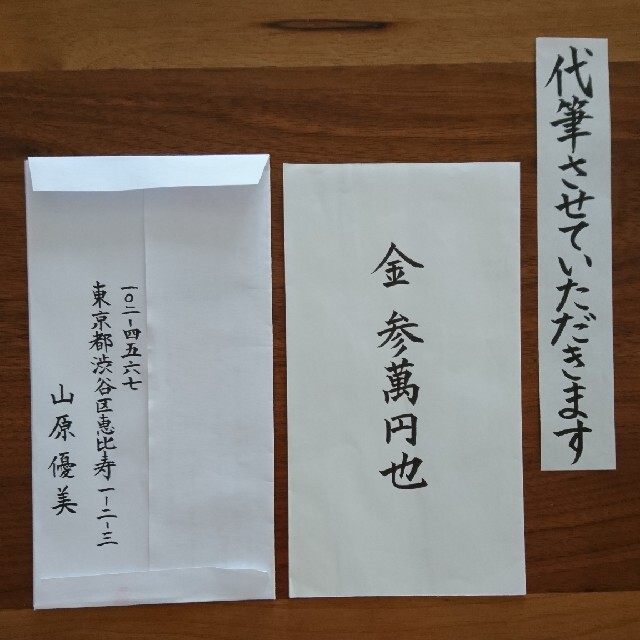 代筆させていただきます
金 参萬円也
一〇二-四五六七
東京都渋谷区恵比寿一-二-三
山原優美